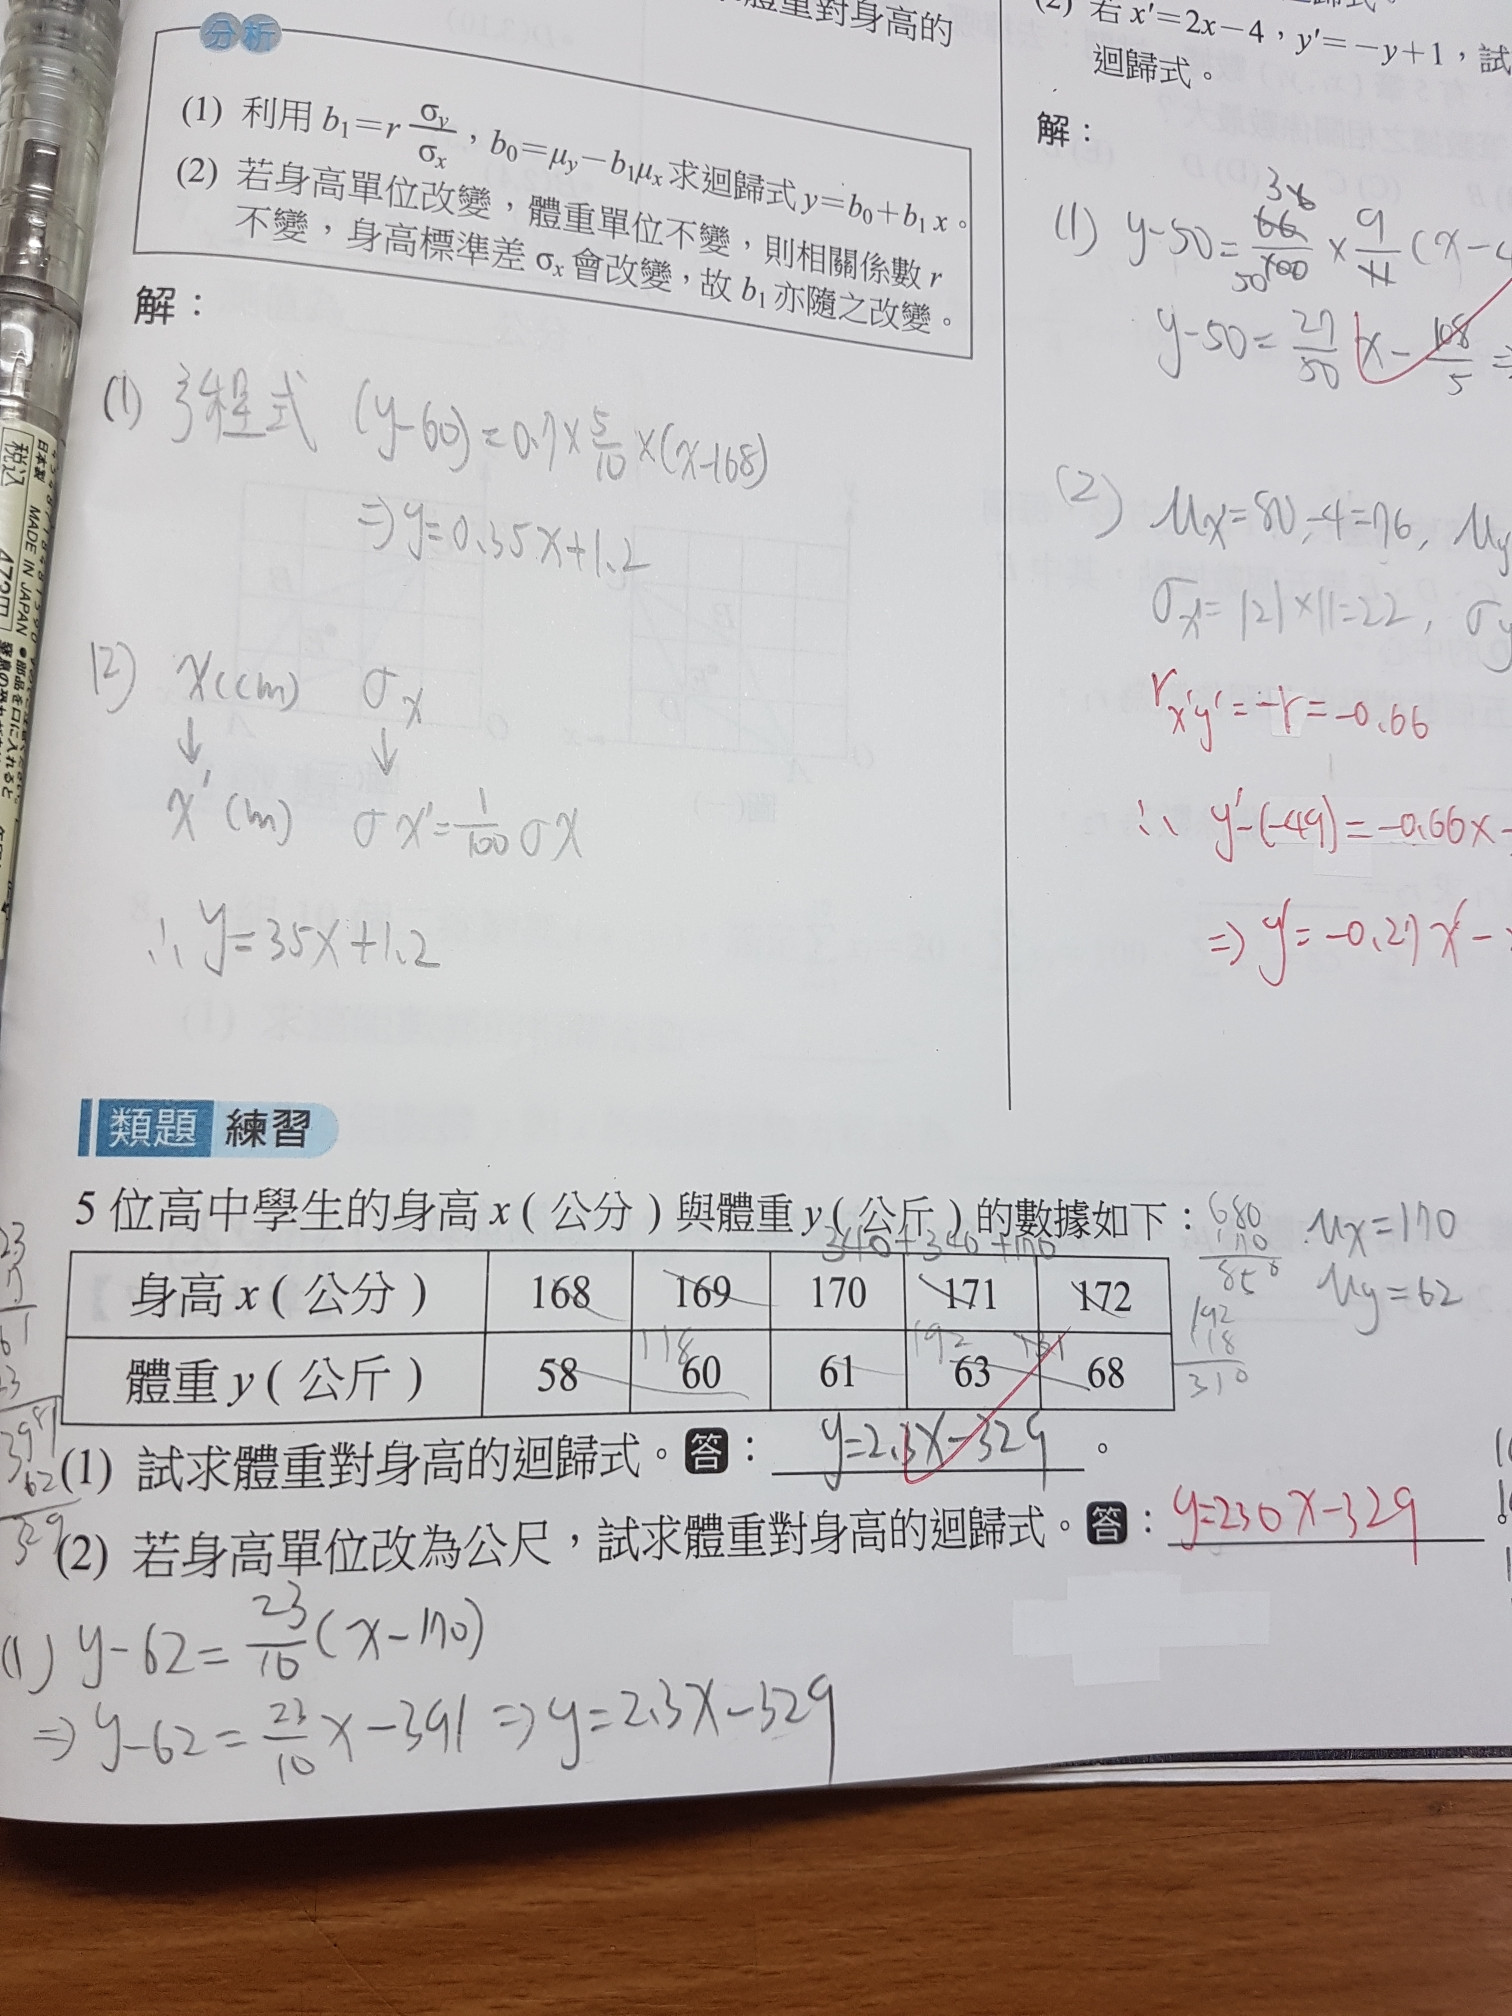 體重對身高的
分析
(1) 利用 b₁=r σy/σx,b₀=μy−b₁μx求迴歸式 y=b₀+b₁x。
(2) 若身高單位改變,體重單位不變,則相關係數 r
不變,身高標準差 σx 會改變,故 b₁ 亦隨之改變。
解:
(1) 方程式 (y-60)=0.7×5/10×(x-168)
⇒y=0.35x+1.2
(2) x(cm) σx
↓ ↓
x'(m) σx'=1/100 σx
∴ y=35x+1.2
(2) 若 x'=2x−4,y'=−y+1,試
迴歸式。
解:
(1) y-50=66/100×9/11(x-4
33
50
y-50=27/50 x-108/5 ⇒
(2) μx'=80-4=76, μy
σx'=|2|×11=22, σy
rx'y'=-r=-0.66
∴ y'-(-49)=-0.66×
⇒ y'=-0.27x'-
類題 練習
5 位高中學生的身高 x ( 公分 ) 與體重 y ( 公斤 ) 的數據如下:
340+340+170
680
170
850
μx=170
μy=62
身高 x ( 公分 ) 168 169 170 171 172
118 192 131
體重 y ( 公斤 ) 58 60 61 63 68
192
118
310
(1) 試求體重對身高的迴歸式。答: y=2.3x-329 。
(2) 若身高單位改為公尺,試求體重對身高的迴歸式。答: y=230x-329
(1) y-62=23/10(x-170)
⇒ y-62=23/10 x-391 ⇒ y=2.3x-329
日本製
MADE IN JAPAN
税込